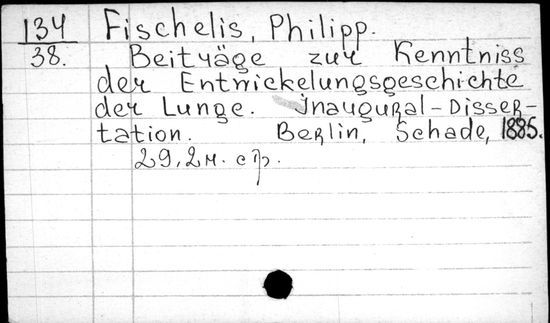 134 Fischelis, Philipp.
38. Beiträge zur Kenntniss
der Entwickelungsgeschichte
der Lunge. Inaugural-Disser-
tation. Berlin, Schade, 1885.
29, 2 н. стр.